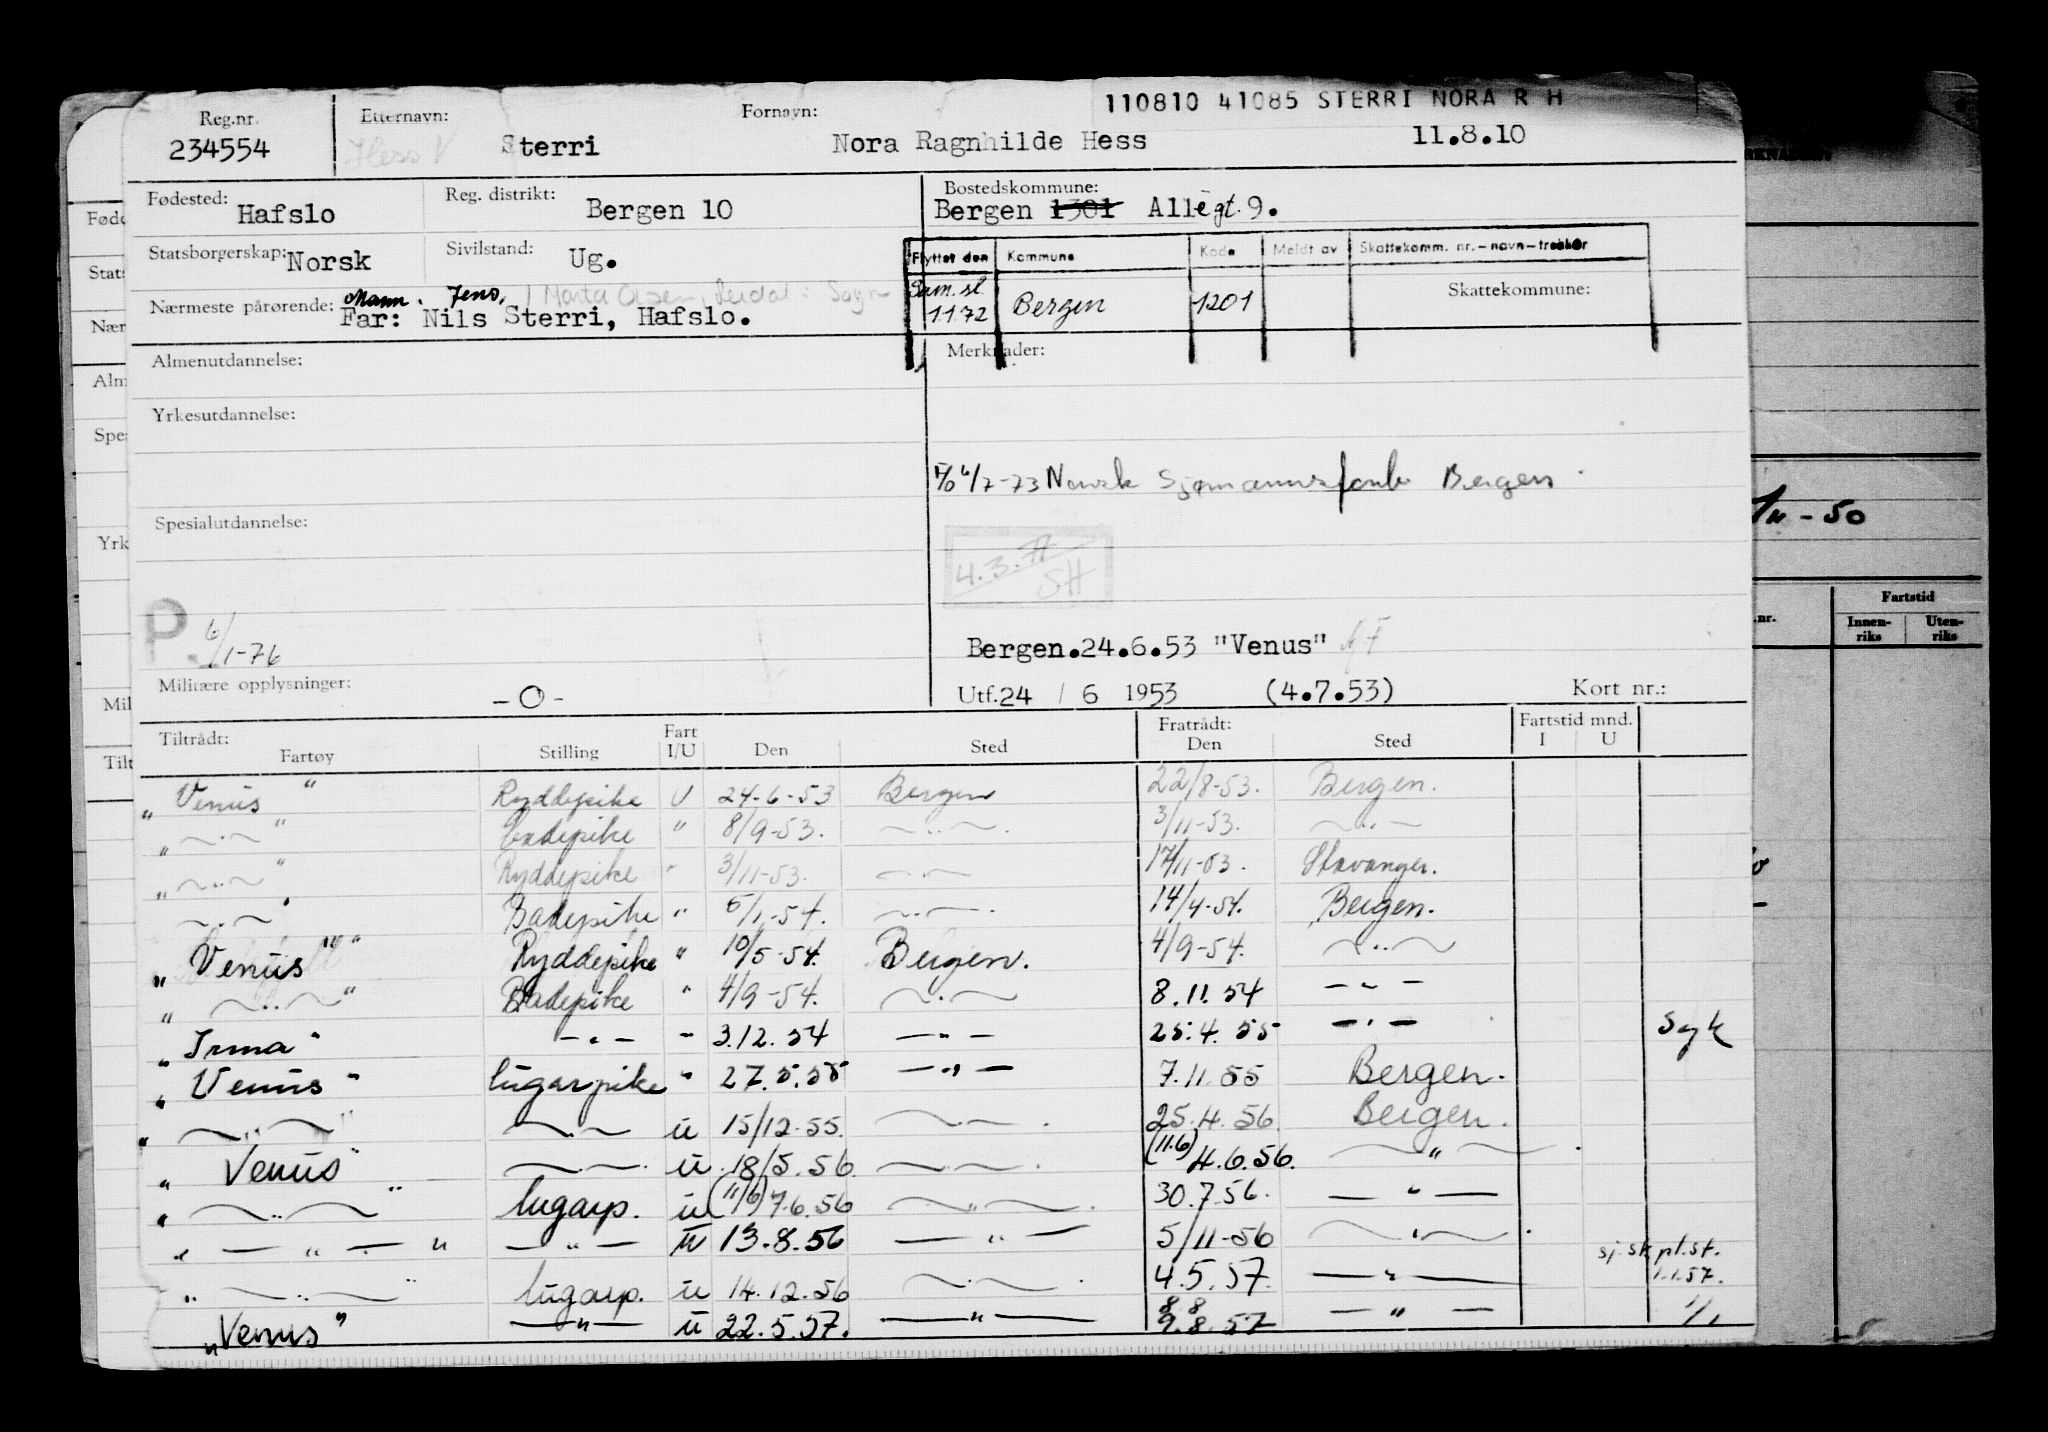 110810 41085 STERRI NORA R H
Reg.nr. Etternavn: Fornavn:
234554 Hess Sterri Nora Ragnhilde Hess 11.8.10
Fødested: Hafslo Reg. distrikt: Bergen 10 Bostedskommune: Bergen 1301 Allégt. 9.
Statsborgerskap: Norsk Sivilstand: Ug.
Flyttet den Kommune Kode Meldt av Skattekomm. nr.-navn-trekkår
Sam.sl. 1.1.72 Bergen 1201 Skattekommune:
Nærmeste pårørende: Mann. Jens,
Far: Nils Sterri, Hafslo.
Almenutdannelse: Merknader:
Yrkesutdannelse:
6/7-73 Norsk Sjømannsforb. Bergen
Spesialutdannelse:
4.3.77
SH
P 6/1-76
Bergen.24.6.53 "Venus"
Militære opplysninger: -O- Utf. 24 / 6 1953 (4.7.53) Kort nr.:
Tiltrådt: Fart Fratrådt: Fartstid mnd.
Fartøy Stilling I/U Den Sted Den Sted I U
"Venus" Ryddepike U 24-6-53 Bergen 22/8-53. Bergen.
" —..— " Badepike " 8/9-53. —..—. 3/11-53. —..—
" —..— " Ryddepike " 3/11-53. —..— 17/11-53. Stavanger.
—..— " Badepike " 5/1-54. —..—. 14/4-54. Bergen.
"Venus" Ryddepike " 10/5-54. Bergen. 4/9-54. —..—
" —..— " Badepike " 4/9-54. —..— 8.11.54 — " —
"Irma" — " — " 3.12.54 — " — 25.4.55 — " — Syk
"Venus" lugarpike " 27.5.55 — " — 7.11.55 Bergen.
" —..— " —..— u 15/12-55. —..—. 25.4.56 Bergen.
"Venus" —..—. u. 18/5.56 —..—. (11.6) 4.6.56. — " —.
" —..— " lugarp. u (11/6) 7.6.56 —..—. 30.7.56. — " —
" — " — " — " — u 13.8.56 — " — 5/11-56 —..—.
" —..— " lugarp. u 14.12.56 —..—. 4.5.57. — " — sj.sk.pl.st. 1.1.57.
"Venus" — " — u 22.5.57. — " — 8 8 9.8.57 — " — 1/1
Fartstid
Innenriks Utenriks
- 50